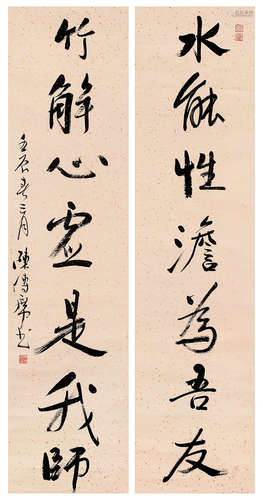 水能性澹為吾友
竹解心虛是我師
壬辰春三月 陳傳席書